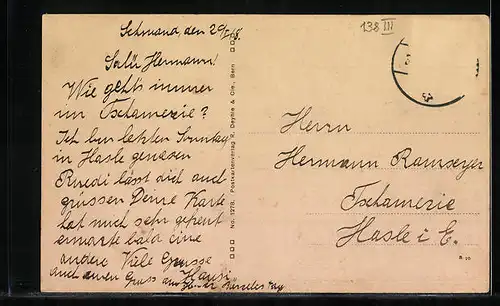 138 III
Schmand, den 20/I 18.
Salü Hermann!
Wie geht's immer
im Tschamerie?
Ich bin letzten Sonntag
in Hasle gewesen
Ruedi lässt dich auch
grüssen Deine Karte
hat mich sehr gefreut
erwarte bald eine
andere Viele Grüsse
Hansi
auch einen Gruss
No. 1278. Postkartenverlag R. Deyhle & Cie., Bern
Herrn
Hermann Ramseyer
Tschamerie
Hasle i E.